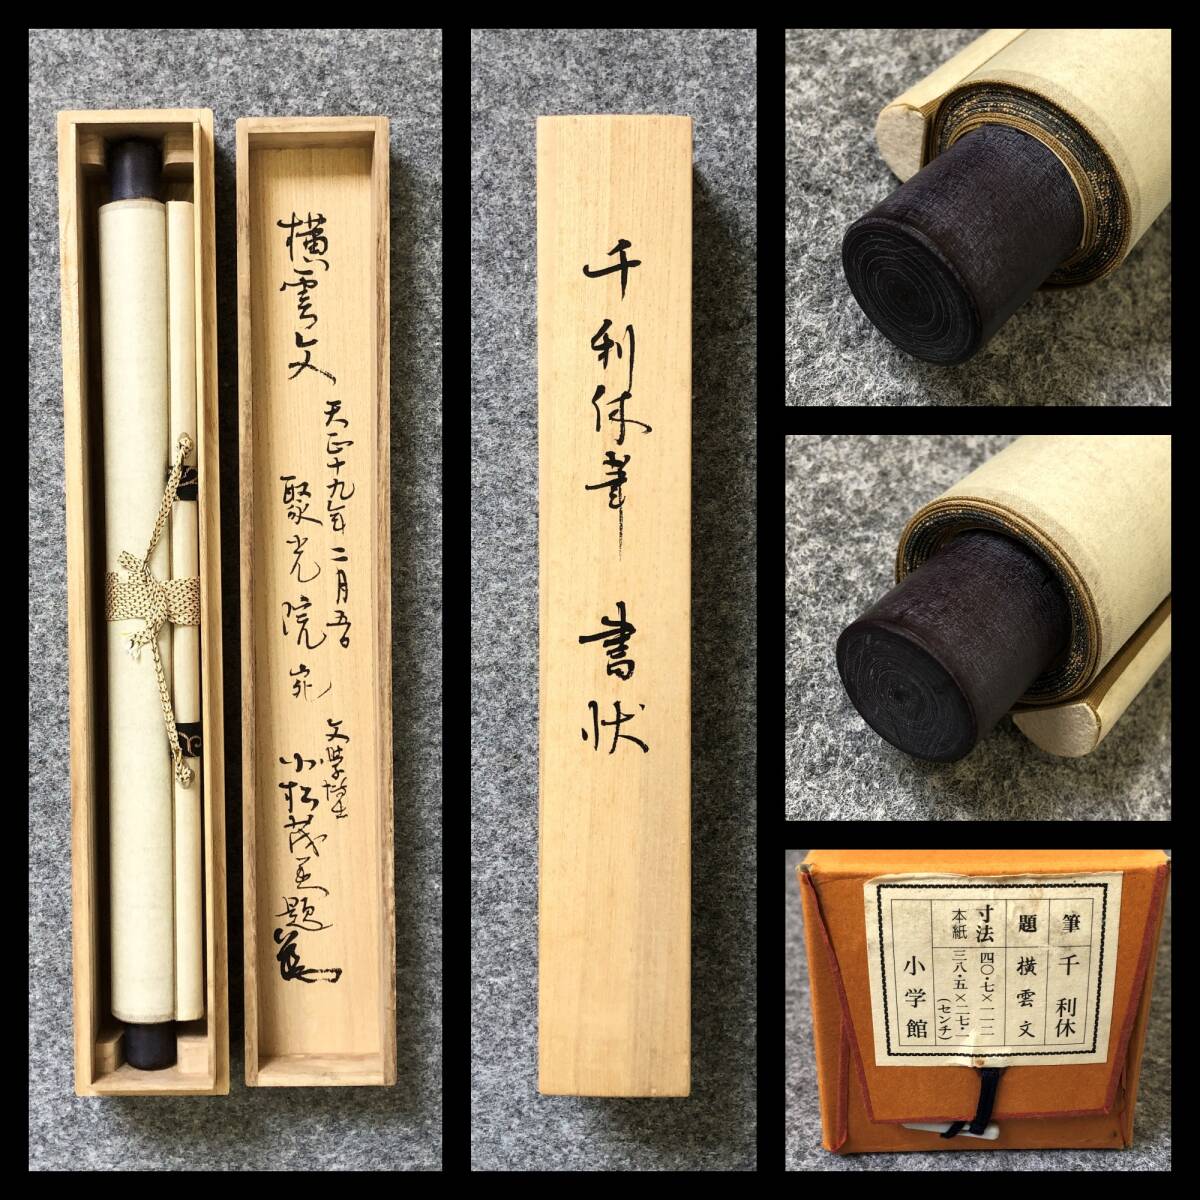 横雲文
天正十九年二月五日
聚光院宛
文学博士
小松茂美題
千利休筆 書状
筆 千利休
題 横雲文
寸法 四〇・七×一一二
本紙 三八・五×二七・一
(センチ)
小学館